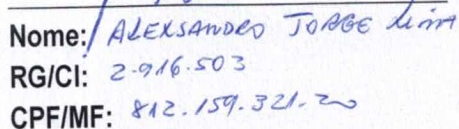 Nome: ALEXSANDRO JORGE Lima
RG/CI: 2.916.503
CPF/MF: 812.159.321.20